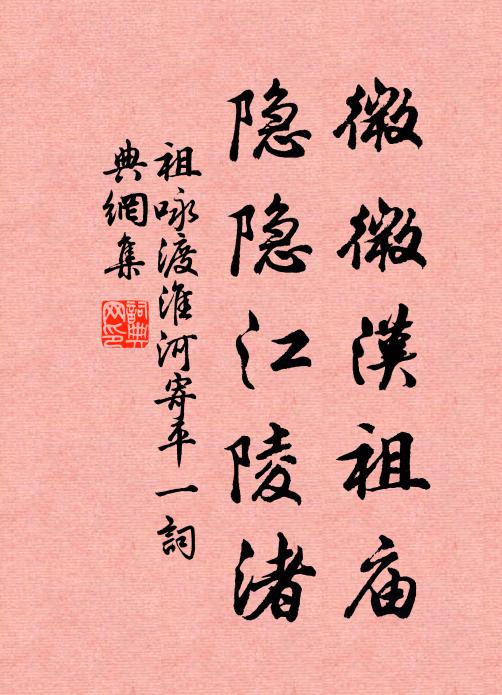 微微漢祖庙
隐隐江陵渚
祖咏渡淮河寄平一詞
典網集
詞典
网印